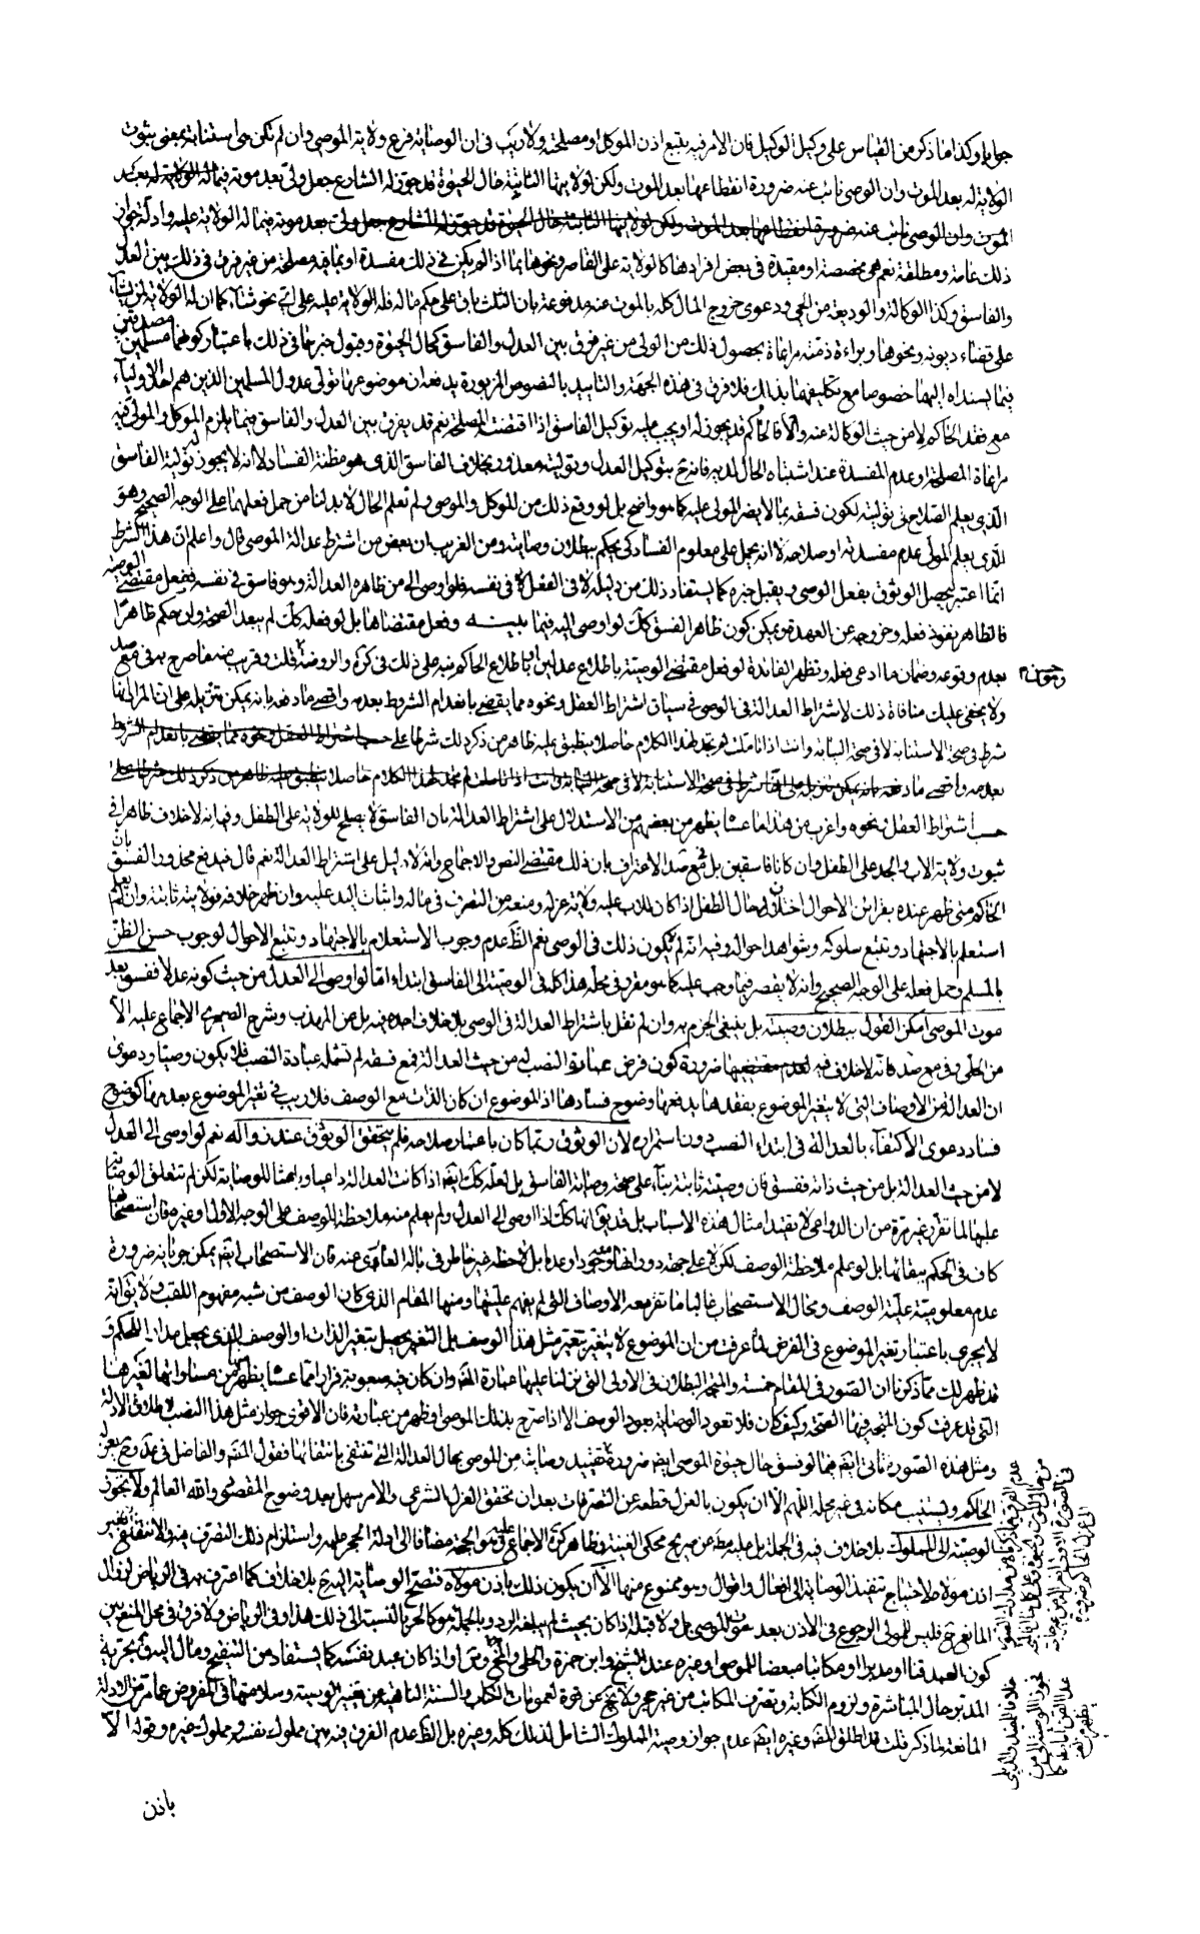 جوابها وكذا ما ذكر من القياس على وكيل الوكيل فان الامر فيه يتبع اذن الموكل او مصلحته ولا ريب في ان الوصاية فرع ولاية الموصي وان لم تكن هي استنابة بمعنى ثبوت
الولاية له بعد الموت وان الوصي نائب عنه ضرورة انقطاعها بعد الموت ولكن لولايتها الثابتة حال الحيوة قد جوز له الشارع جعل ولي بعد موته فيما له الولاية
الموت وان الوصي نائب عنه ضرورة انقطاعها بعد الموت ولكن لولايتها الثابتة حال الحيوة قد جوز له الشارع جعل ولي بعد موته فيما له الولاية عليه وادلة جواز
ذلك عامة ومطلقة نعم هي مخصصة او مقيدة في بعض افرادها كالولاية على القاصر ونحوها بما اذا لم يكن في ذلك مفسدة او بما فيه مصلحة من غير فرق في ذلك بين العدل
والفاسق وكذا الوكالة والوديعة من الحي ودعوى خروج المال كله بالموت عنه مدفوعة بان الثلث باق على حكم ماله فله الولاية عليه على اي نحو شاء كما ان له الولاية لمن شاء
على قضاء ديونه ونحوها وبراءة ذمته مراعاة بحصول ذلك من الولي من غير فرق بين العدل والفاسق كحال الحيوة وقبول خبرهما في ذلك باعتبار كونهما مسلمين مصدقين
فيما يسند اليهما خصوصا مع تكليفهما بذلك فلا فرق في هذه الجهة والتاييد بالنصوص المزبورة يدفعه ان موضوعها تولي عدول المسلمين الذين هم الاولياء
مع فقد الحاكم لا من حيث الوكالة عنه والا فالحاكم قد يجوز له او يجب عليه توكيل الفاسق اذا اقتضته المصلحة نعم قد يفرق بين العدل والفاسق فيما يلزم الموكل والمولى فيه
مراعاة المصلحة وعدم المفسدة عند اشتباه الحال لديه فانه ح بتوكيل العدل وتوليته معذور بخلاف الفاسق الذي هو مظنة الفساد لا انه لا يجوز له تولية الفاسق
الذي يعلم الصلاح في توليته لكون فسقه بما لا يضر المولى عليه كما هو واضح بل لو وقع ذلك من الموكل والموصي ولم نعلم الحال لا بد لنا من حمل فعلهما على الوجه الصحيح وهو
الذي يعلم المولي عدم مفسدته او صلاحه لا انه يحمل على معلوم الفساد كي يحكم ببطلان وصايته ومن الغريب ان بعض من اشترط عدالة الموصي قال واعلم ان هذا الشرط
انما اعتبر ليحصل الوثوق بفعل الوصي ويقبل خبره كما يستفاد ذلك من دليله لا في الفعل في نفسه فلو اوصى الى من ظاهره العدالة وهو فاسق في نفسه ففعل مقتضى الوصية
فالظاهر نفوذ فعله وخروجه عن العهدة ويمكن كون ظاهر الفسق كك لو اوصى اليه فيما بينه وفعل مقتضاها بل لو فعله كك لم تبعد الصحة وان حكم ظاهرا
بعدم وقوعه وضمان ما ادعى فعله وتظهر الفائدة لو فعل مقتضى الوصية باطلاع عدلين او باطلاع الحاكم نبه على ذلك في كرة والروضة قلت وقريب منه ما صرح به في مع صد
ولا يخفى عليك منافاة ذلك لاشتراط العدالة في الوصي في سياق اشتراط العقل ونحوه مما يقضي بانعدام المشروط بعدمه واقصى ما دفعه بانه يمكن تنزيله على
شرط في صحة الاستنابة لا في صحة النيابة وانت اذا تاملت لم تجد لهذا الكلام حاصلا ينطبق عليه ظاهر من ذكر ذلك شرطا على حسب اشتراط العقل ونحوه مما يقضي بانعدام المشروط
بعدمه واقصى ما دفعه بانه يمكن تنزيله على انها شرط في صحة الاستنابة لا في صحة النيابة وانت اذا تاملت لم تجد لهذا الكلام حاصلا ينطبق عليه ظاهر من ذكر ذلك شرطا على
حسب اشتراط العقل ونحوه واغرب من هذا ما عساه يظهر من بعضهم من الاستدلال على اشتراط العدالة بان الفاسق لا يصلح للولاية على الطفل وفيه انه لا خلاف ظاهرا في
ثبوت ولاية الاب والجد على الطفل وان كانا فاسقين بل في مع صد الاعتراف بان ذلك مقتضى النص والاجماع وانه لا دليل على اشتراط العدالة نعم قال فيدفع محذور الفسق بان
الحاكم متى ظهر عنده بقرائن الاحوال اختلال حال الطفل اذا كان للاب عليه ولاية عزله ومنعه من التصرف في ماله واثبات اليد عليه وان ظهر خلافه فولايته ثابتة وان لم يعلم
استعلم بالاجتهاد وتتبع سلوكه وشواهد احواله وفيه انه لم لا يكون ذلك في الوصي نعم الظ عدم وجوب الاستعلام بالاجتهاد وتتبع الاحوال لوجوب حسن الظن
بالمسلم وحمل فعله على الوجه الصحيح وانه لا يقصر فيما وجب عليه كما هو مقرر في محله هذا كله في الوصية الى الفاسق ابتداء اما لو اوصى الى العدل من حيث كونه عدلا ففسق بعد
موت الموصي امكن القول ببطلان وصيته بل ينبغي الجزم به وان لم نقل باشتراط العدالة في الوصي بلا خلاف اجده فيه بل عن المهذب وشرح الصيمري الاجماع عليه الا
من الحلي وفي مع صد فانه لا خلاف فيه ضرورة كون فرض عبارة النصب له من حيث العدالة فمع فسقه لم تشمله عبارة النصب فلا يكون وصيا ودعوى
ان العدالة من الاوصاف التي لا يتغير الموضوع بفقدها يدفعها وضوح فسادها اذ الموضوع ان كان الذات مع الوصف فلا ريب في تغير الموضوع بعدمها كوضوح
فساد دعوى الاكتفاء بالعدالة في ابتداء النصب دون استمراره لان الوثوق ربما كان باعتبار صلاحه فلم يتحقق الوثوق عند زواله نعم لو اوصى الى العدل
لا من حيث العدالة بل من حيث ذاته وفسق فان وصيته ثابتة بناء على صحة وصاية الفاسق بل لعله كك ايض اذا كانت العدالة داعيا وباعثا للوصاية لكن لم تتعلق الوصاية
عليها لما تقرر غير مرة من ان الدواعي لا يقيد امثال هذه الاسباب بل قد يق انها كك اذا اوصى الى العدل ولم يعلم منه ملاحظة الوصف على الوجه الاول او غيره فان استصحابها
كاف في الحكم ببقائها بل لو علم ملاحظة الوصف لكن لا على جهة دورانها معه وجودا وعدما بل لاحظه غير خاطر في باله العاري عنه فان الاستصحاب ايض يمكن جريانه ضرورة
عدم معلومية علية الوصف ومحال الاستصحاب غالبا ما تقر معه الاوصاف التي لم يفهم عليتها ومنها المقام الذي كان الوصف من شبه مفهوم اللقب ولا يق انه
لا يجري باعتبار تغير الموضوع في الفرض لما عرفت من ان الموضوع لا يتغير بتغير مثل هذا الوصف بل التغير يحصل بتغير الذات او الوصف الذي يجعل مدارا للحكم و
قد ظهر لك مما ذكرنا ان الصور في المقام خمسة والمتجه البطلان في الاولى التي نزلنا عليها عبارة المص وان كان فيه صعوبة فرارا مما عساه يظهر من مساواتها لغيرها
التي قد عرفت كون المتجه فيها الصحة وكيف كان فلا تعود الوصاية بعود الوصف الا اذا صرح بذلك الموصي او ظهر من عبارته فان الاقوى جواز مثل هذا النصب لاطلاق الادلة
ومثل هذه الصورة تاتي ايض فيما لو فسق حال حيوة الموصي ايض ضرورة تقييد وصايته من الموصي بحال العدالة التي تنتفي بانتفائها فقول المص والفاضل في عد وح يعزله
الحاكم ويستنيب مكانه في غير محله اللهم الا ان يكون بالعزل قطعه عن التصرفات بعد ان تحقق العزل الشرعي والامر سهل بعد وضوح المقصود والله العالم ولا يجوز
الوصية الى المملوك بلا خلاف فيه في الجملة بل عليه من صريح محكي الغنية وظاهر كرة الاجماع عليه وهو الحجة مضافا الى ادلة الحجر عليه واستلزام ذلك التصرف فيه والانتفاع بغير
اذن مولاه لاحتياج تنفيذ الوصاية الى افعال واقوال وهو ممنوع منها الا ان يكون ذلك باذن مولاه فتصح الوصاية اليه ح بلا خلاف كما اعترف به في الرياض لزوال
المانع ح فليس للمولى الرجوع في الاذن بعد موت الموصي بل ولا قبله اذا كان بحيث لم يبلغه الرد وبالجملة هو كالحر بالنسبة الى ذلك هذا وفي الرياض ولا فرق في محل المنع بين
كون العبد قنا او مدبرا او مكاتبا مبعضا للموصي او غيره عند الشيخ وابن حمزة والحلي او اذا كان عبد نفسه كما يستفاد من التنقيح ومال اليه بحرية
المدبر حال المباشرة ولزوم الكتابة وتصرف المكاتب من غير حجر ولا يخ عن قوة لعمومات الكتاب والسنة الناهية عن تغيير الوصية وسلامتها في المفروض عما مر من الادلة
المانعة لما ذكر قلت قد اطلق المص وغيره ايض عدم جواز وصية المملوك الشامل لذلك كله وغيره بل الظ عدم الفرق فيه بين مملوك نفسه ومملوك غيره وقوله الا
باذن